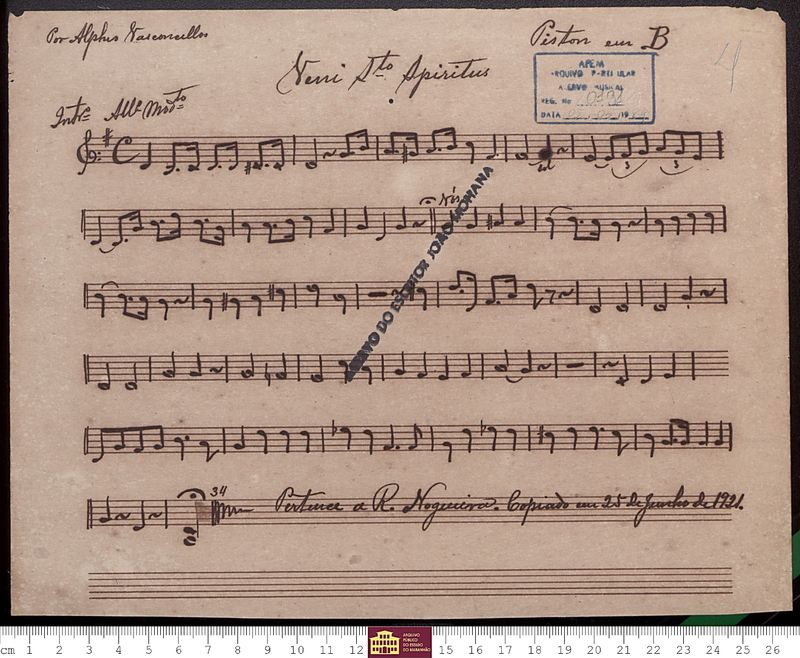 Por Alpheu Vasconcellos
Piston em B
Veni Sto Spiritus
4
APEM
ARQUIVO PARTICULAR
ACERVO MUSICAL
REG. No
DATA 19
Intr. All. Modto
sol
3
3
Vós
ACERVO DO ESCRITOR JOÃO MOHANA
34
Pertence a R. Nogueira. Copiado em 25 de Junho de 1921.
cm 1 2 3 4 5 6 7 8 9 10 11 12 15 16 17 18 19 20 21 22 23 24 25 26
ARQUIVO
PÚBLICO
DO ESTADO
DO MARANHÃO